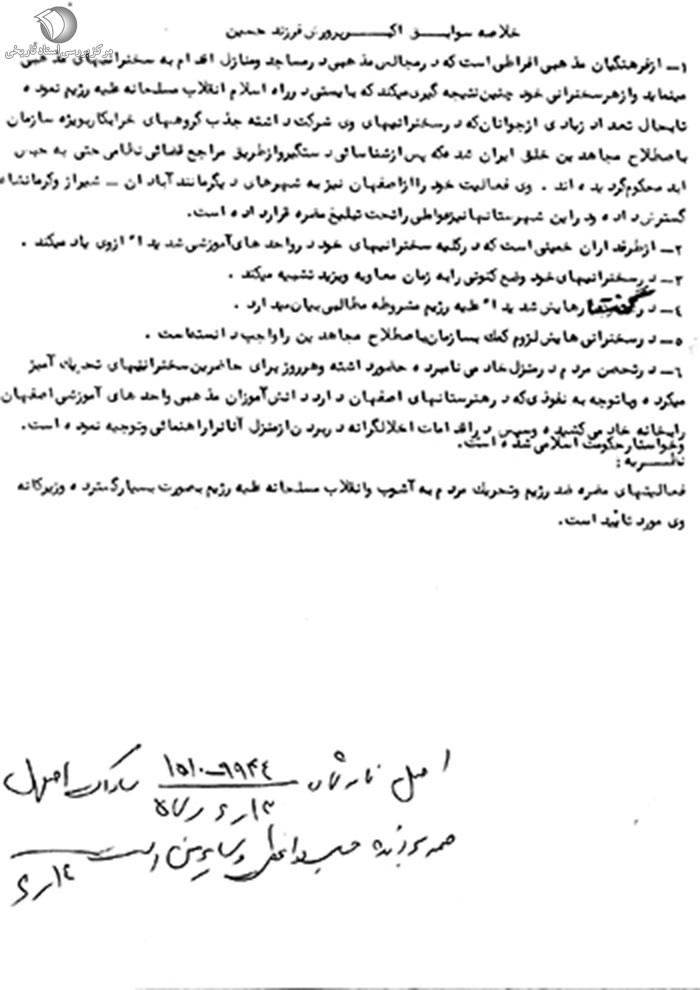 مرکز بررسی اسناد تاریخی
خلاصه سوابق اکبر پرورش فرزند حسین
۱- ازفرهنگیان مذهبی افراطی است که در مجالس مذهبی در مساجد ومنازل اقدام به سخنرانیهای مذهبی
مینماید وازهرسخنرانی خود چنین نتیجه گیری میکند که بایستی درراه اسلام انقلاب مسلحانه علیه رژیم نموده
تابحال تعداد زیادی ازجوانان که در سخنرانیهای وی شرکت داشته جذب گروههای خرابکار بویژه سازمان
باصطلاح مجاهدین خلق ایران شده که پس ازشناسائی دستگیر وازطریق مراجع قضائی نظامی حتی به حبس
ابد محکوم گردیده اند . وی فعالیت خود را ازاصفهان نیز به شهرهای دیگر مانند آبادان - شیراز وکرمانشاه
گسترش داده ودراین شهرستانها نیزعواملی راتحت تبلیغ مضره قرارداده است.
۲- ازطرفداران خمینی است که درکلیه سخنرانیهای خود درواحدهای آموزشی شدیداً ازوی یاد میکند .
۳- درسخنرانیهای خود وضع کنونی رابه زمان معاویه ویزید تشبیه میکند .
۴- در گفتارهایش شدیداً علیه رژیم مشروطه مطالبی بیان میدارد .
۵- درسخنرانی هایش لزوم کمک بسازمان باصطلاح مجاهدین راواجب دانسته است .
۶- درتحصن مردم درمنزل خادمی نامبرده حضورداشته وهرروز برای حاضرین سخنرانیهای تحریک آمیز
میکرده وباتوجه به نفوذی که در هنرستانهای اصفهان دارد دانش آموزان مذهبی واحدهای آموزشی اصفهان
رابخانه خادمی کشیده وسپس دراقدامات اخلالگرانه دربیرون ازمنزل آنانراراهنمائی وتوجیه نموده است.
وخواستارحکومت اسلامی شده است.
نظریه :
فعالیتهای مضره ضد رژیم وتحریک مردم به آشوب وانقلاب مسلحانه علیه رژیم بصورت بسیارگسترده وزیرکانه
وی مورد تائید است.
اصل نامه شماره ۱۵۱۰-۹۹۴۴ ساواک اصفهان